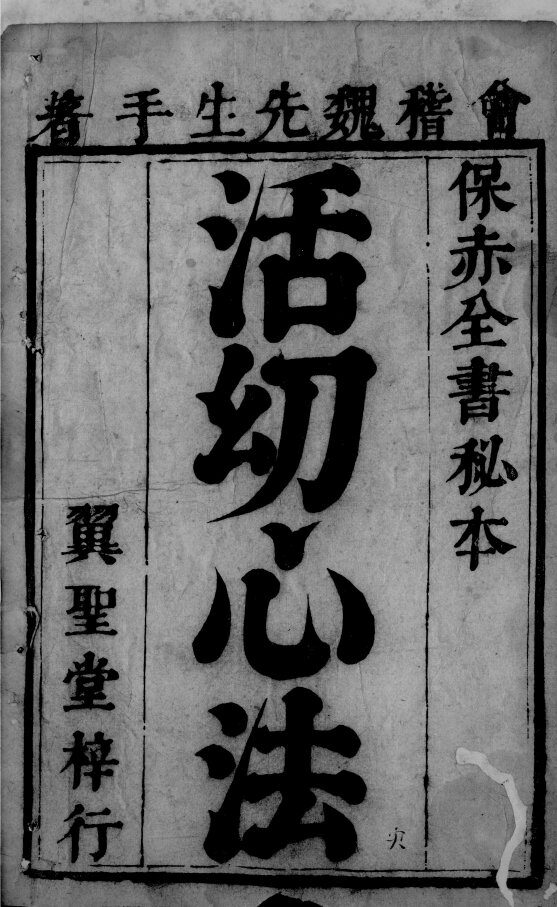 會稽魏先生手著
保赤全書秘本
活幼心法
翼聖堂梓行